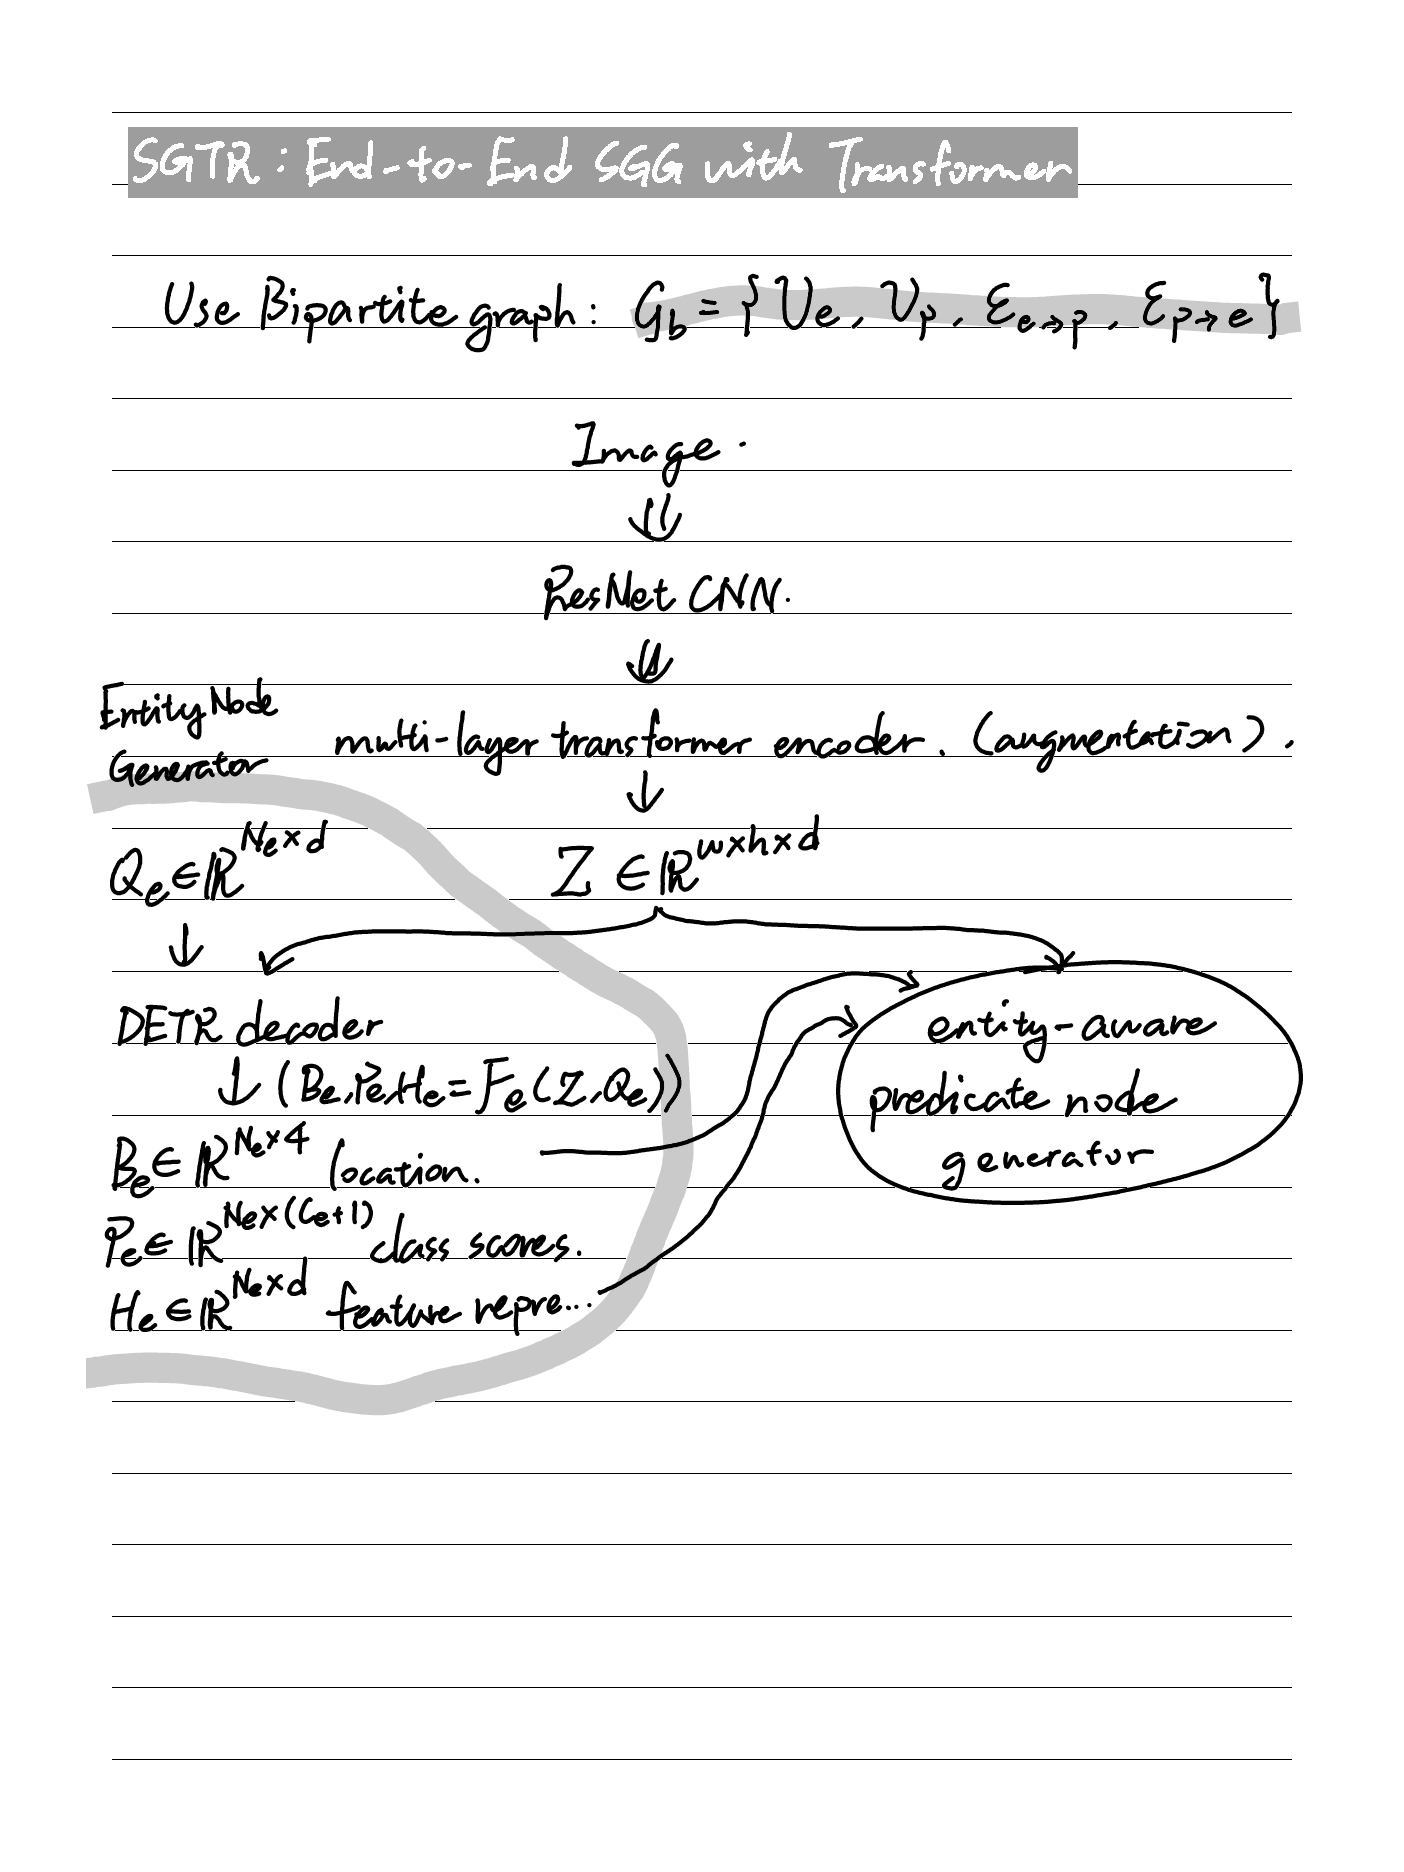 SGTR : End-to-End SGG with Transformer
Use Bipartite graph : G_b = { V_e , V_p , ℰ_{e→p} , ℰ_{p→e} }
Image .
⇓
ResNet CNN.
⇓
Entity Node
Generator
multi-layer transformer encoder. (augmentation) .
↓
Q_e ∈ ℝ^{N_e×d}
Z ∈ ℝ^{w×h×d}
↓
DETR decoder
↓ (B_e, P_e, H_e = F_e(Z, Q_e))
B_e ∈ ℝ^{N_e×4} location.
P_e ∈ ℝ^{N_e×(C_e+1)} class scores.
H_e ∈ ℝ^{N_e×d} feature repre...
entity-aware
predicate node
generator